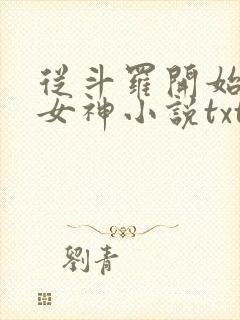 從斗羅開始
女神小説txt
劉青